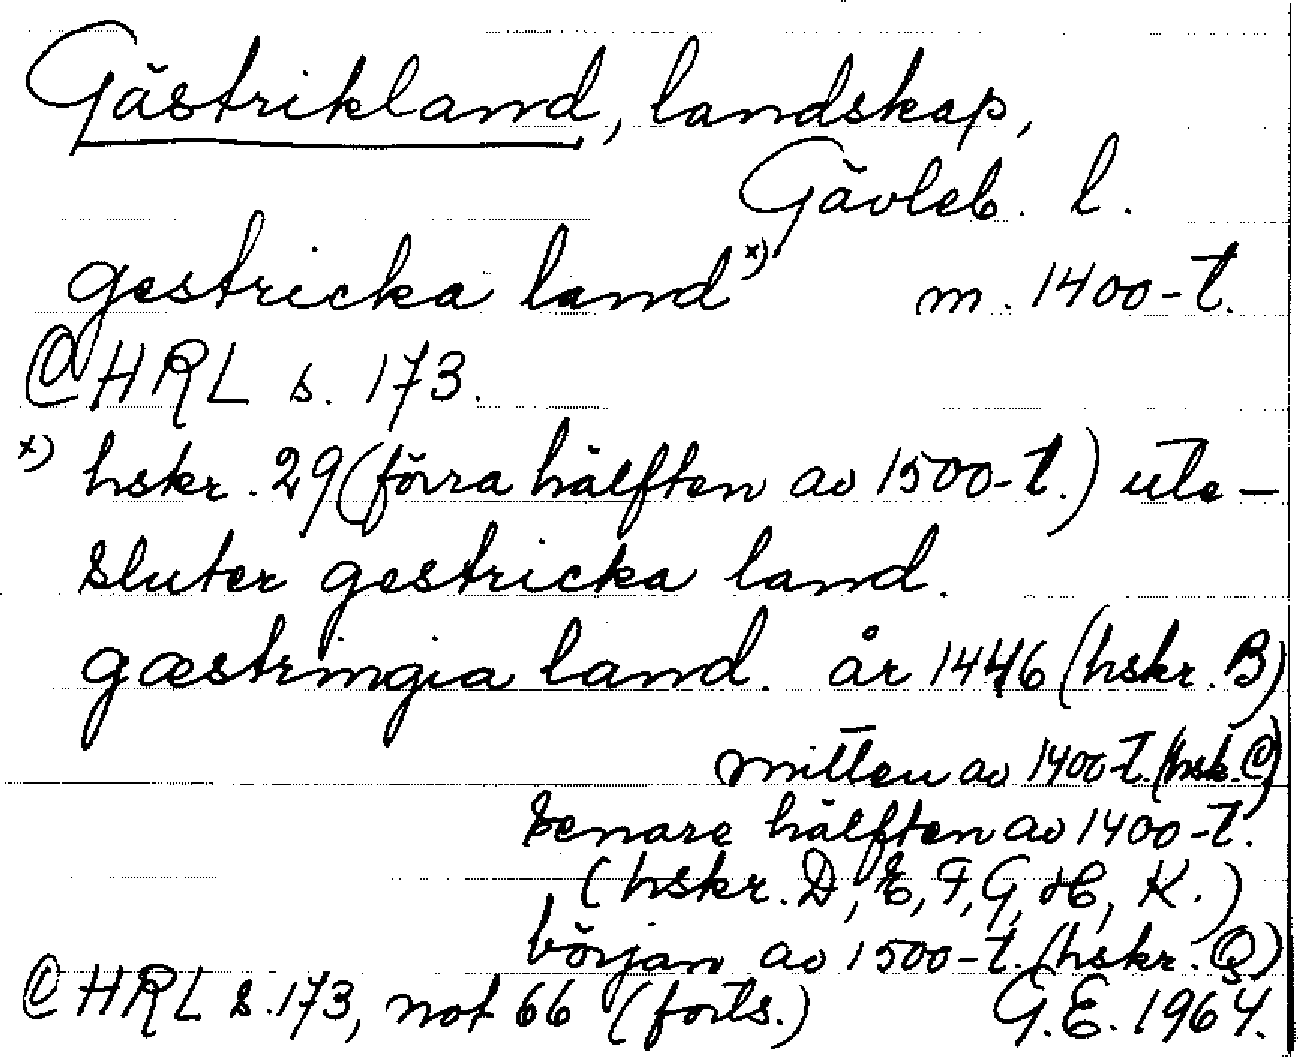 Gästrikland, landskap,
Gävleb. l.
gestricka land x) m. 1400-t.
CHRL s. 173.
x) hskr. 29 (förra hälften av 1500-t.) ute-
sluter gestricka land.
gæstringia land. år 1446 (hskr. B)
mitten av 1400-t. (hsk. C)
senare hälften av 1400-t.
(hskr. D, E, F, G, H, K.)
början av 1500-t. (hskr. Q)
CHRL s. 173, not 66 (forts.) G.E. 1964.